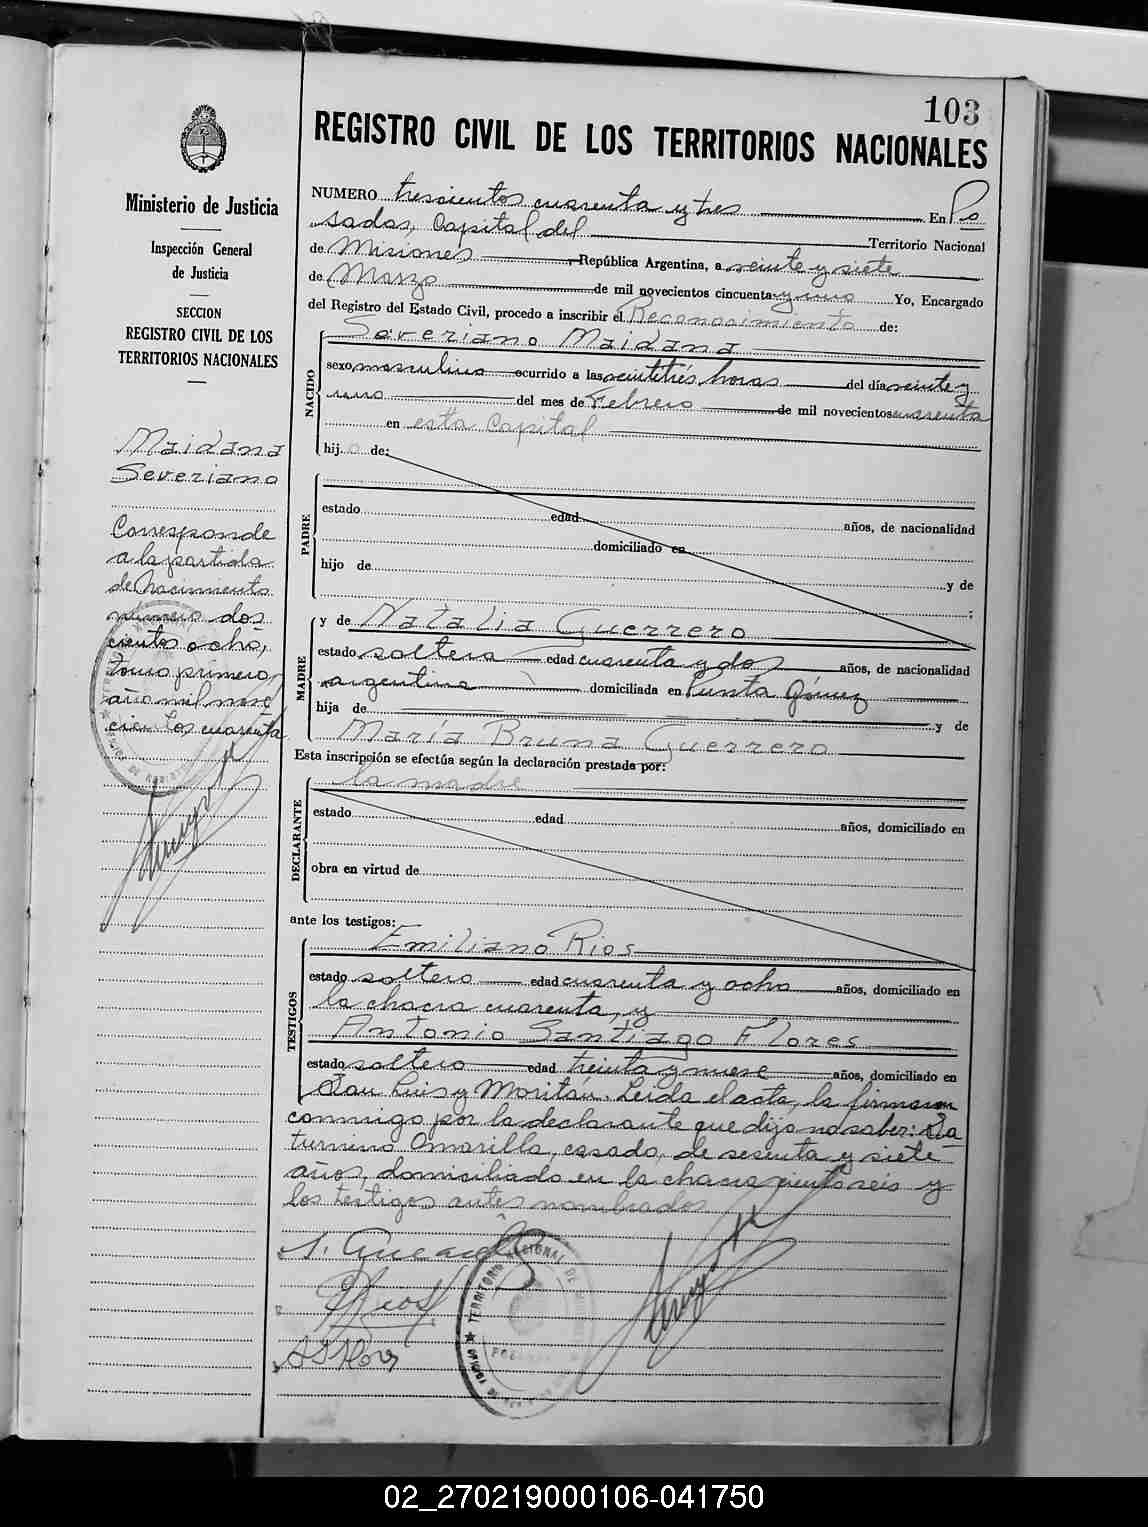 103
REGISTRO CIVIL DE LOS TERRITORIOS NACIONALES
Ministerio de Justicia
Inspección General
de Justicia
SECCION
REGISTRO CIVIL DE LOS
TERRITORIOS NACIONALES
Maidana
Severiano
Corresponde
a la partida
de Nacimiento
número dos
cientos ocho,
tomo primero
año mil nove
cientos cuarenta
NUMERO trescientos cuarenta y tres En Po
sadas, Capital del Territorio Nacional
de Misiones, República Argentina, a veinte y siete
de Marzo de mil novecientos cincuenta y uno Yo, Encargado
del Registro del Estado Civil, procedo a inscribir el Reconocimiento de:
Severiano Maidana
NACIDO
sexo masculino ocurrido a las veintitrés horas del día veinte y
uno del mes de Febrero de mil novecientos cuarenta
en esta Capital
hijo de:
PADRE
estado edad años, de nacionalidad
domiciliado en
hijo de y de
;
y de Natalia Guerrero
MADRE
estado soltera edad cuarenta y dos años, de nacionalidad
argentina domiciliada en Punta Gómez
hija de y de
María Bruna Guerrero
Esta inscripción se efectúa según la declaración prestada por:
la madre
DECLARANTE
estado edad años, domiciliado en
obra en virtud de
ante los testigos:
Emiliano Rios
TESTIGOS
estado soltero edad cuarenta y ocho años, domiciliado en
la chacra cuarenta, y
Antonio Santiago Flores
estado soltero edad treinta y nueve años, domiciliado en
San Luis y Moritán. Leída el acta, la firmaron
conmigo por la declarante que dijo no saber: Sa
turnino Amarilla, casado, de sesenta y siete
años, domiciliado en la chacra ciento seis y
los testigos antes nombrados
E Rios
A S Flores
TERRITORIO NACIONAL DE MISIONES
02_270219000106-041750